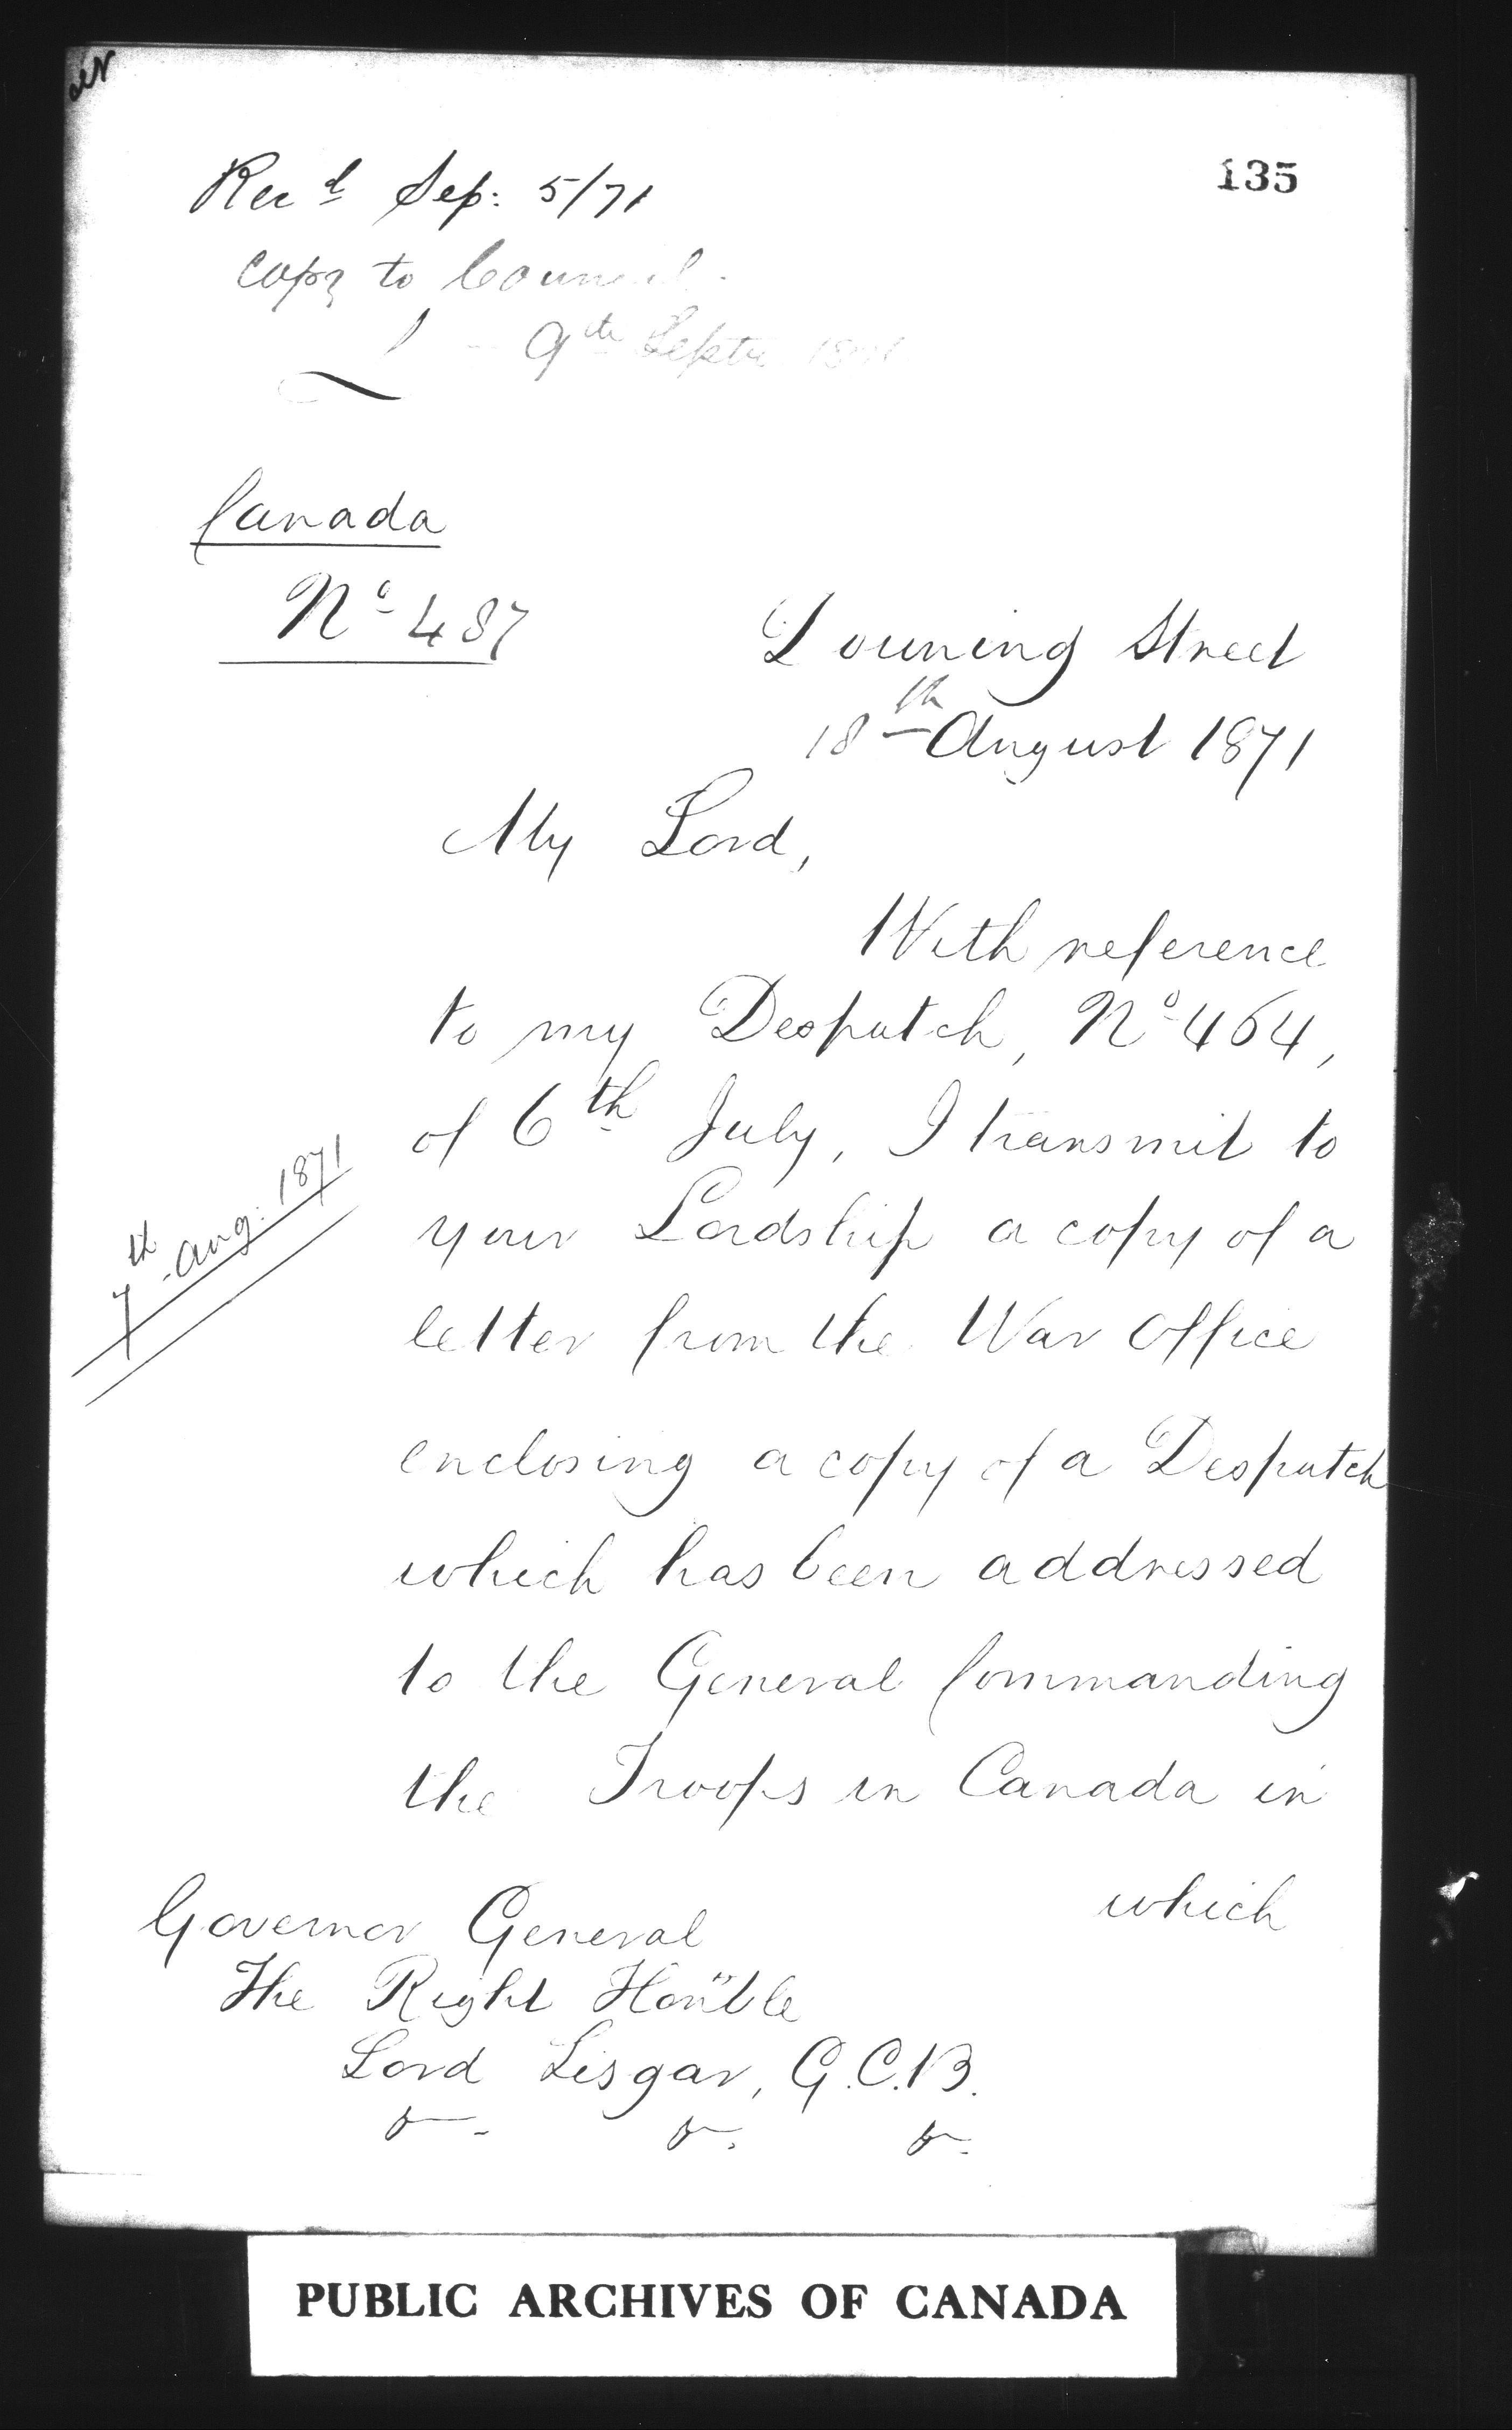 135
Recd Sep: 5/71
Copy to Council.
9th Septr 1871
Canada
No 487
Downing Street
18th August 1871
My Lord,
With reference
to my Despatch, No 464,
of 6th July, I transmit to
7th Aug: 1871
your Lordship a copy of a
letter from the War Office
enclosing a copy of a Despatch
which has been addressed
to the General Commanding
the Troops in Canada in
which
Governor General
The Right Honble
Lord Lisgar, G.C.B.
&c. &c. &c.
PUBLIC ARCHIVES OF CANADA